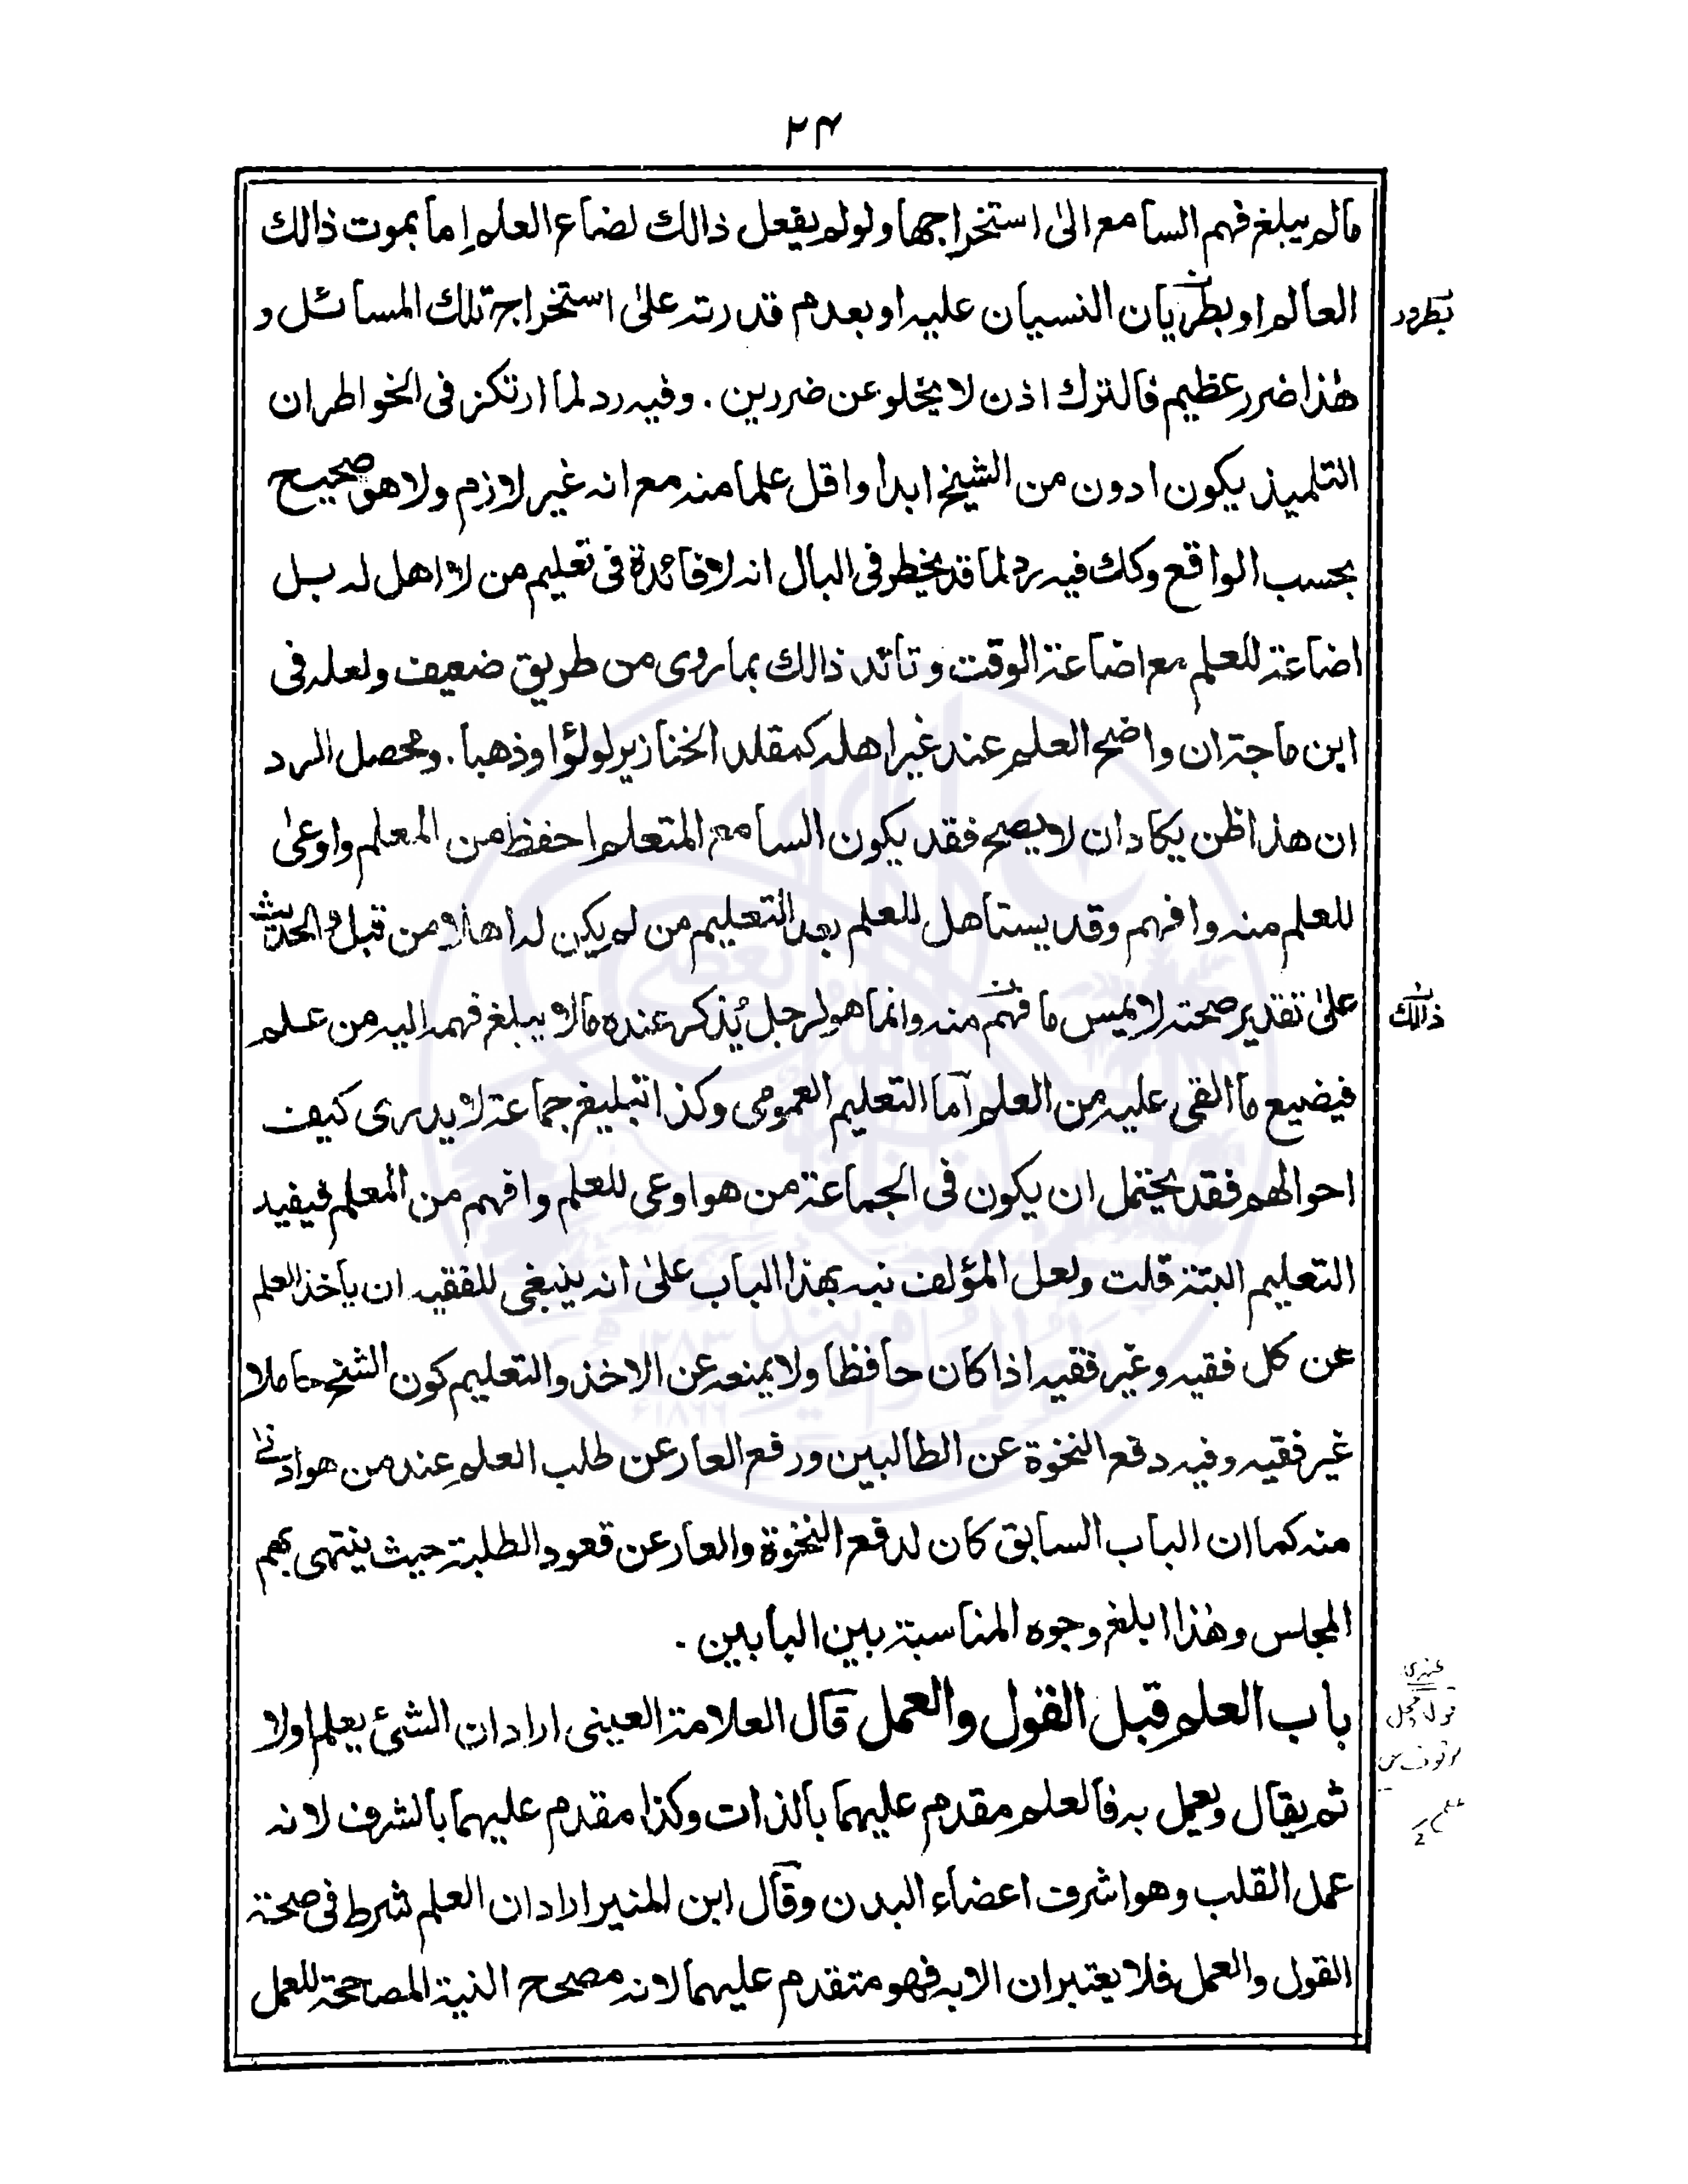 ۲۴
مالم يبلغ فهم السامع الیٰ استخراجها ولولم يفعل ذالك لضاع العلم إما بموت ذالك
العالم او بطريان النسيان عليه او بعدم قدرته علیٰ استخراجة تلك المسائل و
بطرور
هٰذا ضرر عظيم فالترك اذن لا يخلو عن ضررين . وفيه رد لما ارتكز فی الخواطر ان
التلميذ يكون ادون من الشيخ ابدا واقل علما منه مع انه غير لازم ولا هو صحيح
بحسب الواقع وكك فيه رد لما قد يخطر فی البال انه لا فائدة فی تعليم من لا اهل له بل
اضاعة للعلم مع اضاعة الوقت وتائد ذالك بما روی من طريق ضعيف ولعله فی
ابن ماجة ان واضح العلم عند غير اهله كمقلد الخنازير لولؤا وذهبا . ومحصل الرد
ان هذا ظن يكاد ان لا يصح فقد يكون السامع المتعلم احفظ من المعلم واوعیٰ
للعلم منه وافهم وقد يستاهل للعلم بعد التعليم من لم يكن له اهلا من قبل والحديث
علیٰ تقدير صحته لا يميس ما فهم منه وانما هو لرجل يُذكر عنده مالا يبلغ فهمه اليه من علم
ذالك
فيضيع ما القی عليه من العلم آما التعليم العمومی وكذا تبليغ جماعة لا يدری كيف
احوالهم فقد يحتمل ان يكون فی الجماعة من هو اوعی للعلم وافهم من المعلم فيفيد
التعليم البتة قلت ولعل المؤلف نبه بهذا الباب علیٰ انه ينبغی للفقيه ان يأخذ العلم
عن كل فقيه وغير فقيه اذا كان حافظا ولا يمنعه عن الاخذ والتعليم كون الشخ حاملا
غير فقيه وفيه دفع النخوة عن الطالبين ورفع العار عن طلب العلمِ عند من هو ادنیٰ
منه كما ان الباب السابق كان لدفع النخوة والعار عن قعود الطلبة حيث ينتهی بهم
المجلس وهٰذا ابلغ وجوه المناسبة بين البابين .
باب العلم قبل القول والعمل قال العلامة العينی اراد ان الشئ يعلم اولا
ثم يقال ويعمل به فالعلم مقدم عليهما بالذات وكذا مقدم عليهما بالشرف لانه
عمل القلب وهو اشرف اعضاء البدن وقال ابن المنير اراد ان العلم شرط فی صحة
القول والعمل فلا يعتبران الا به فهو متقدم عليهما لانه مصحح النية المصاححة للعمل